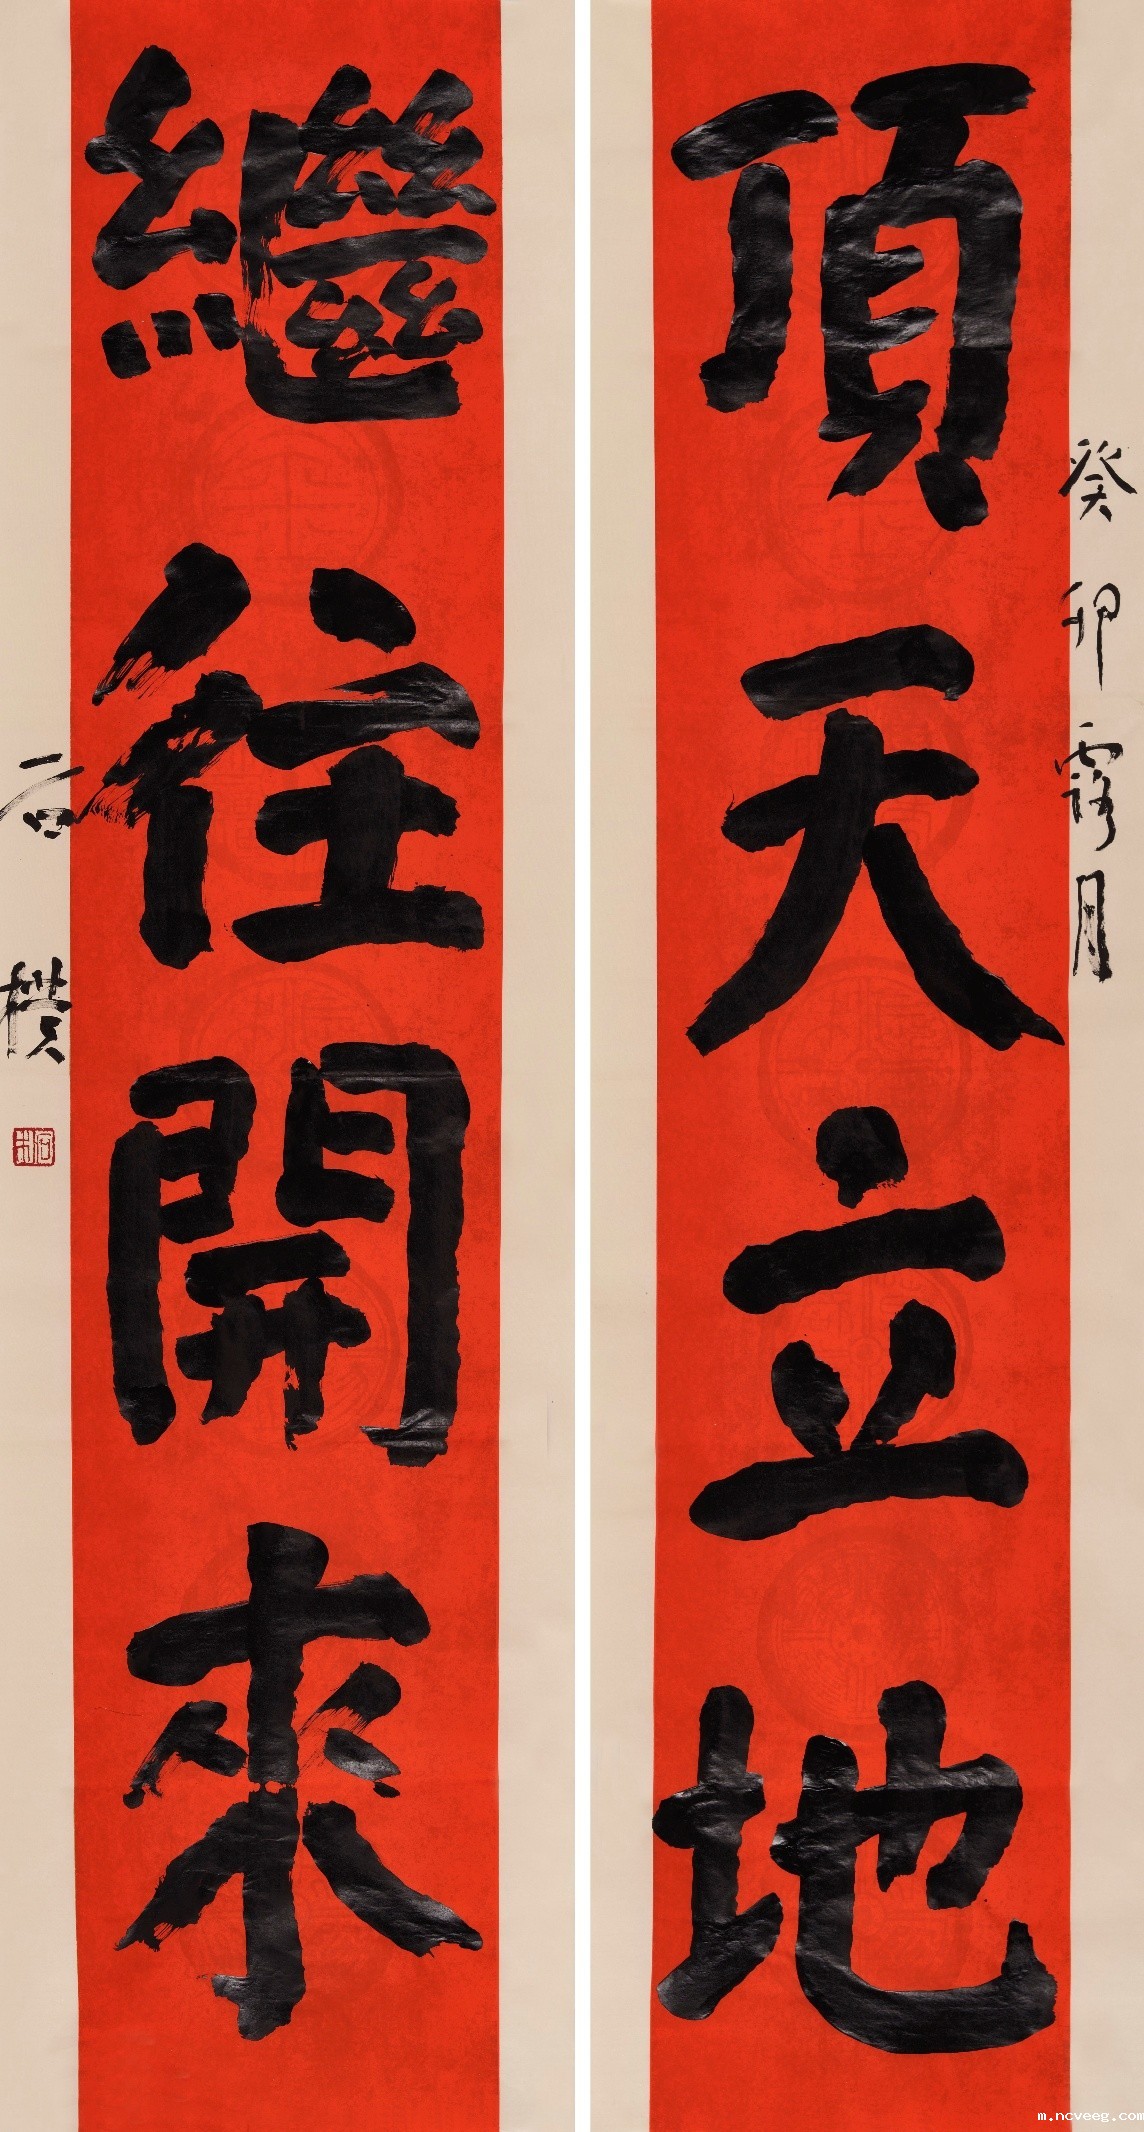 頂天立地
繼往開來
癸卯露月
石樸
m.ncveeg.com